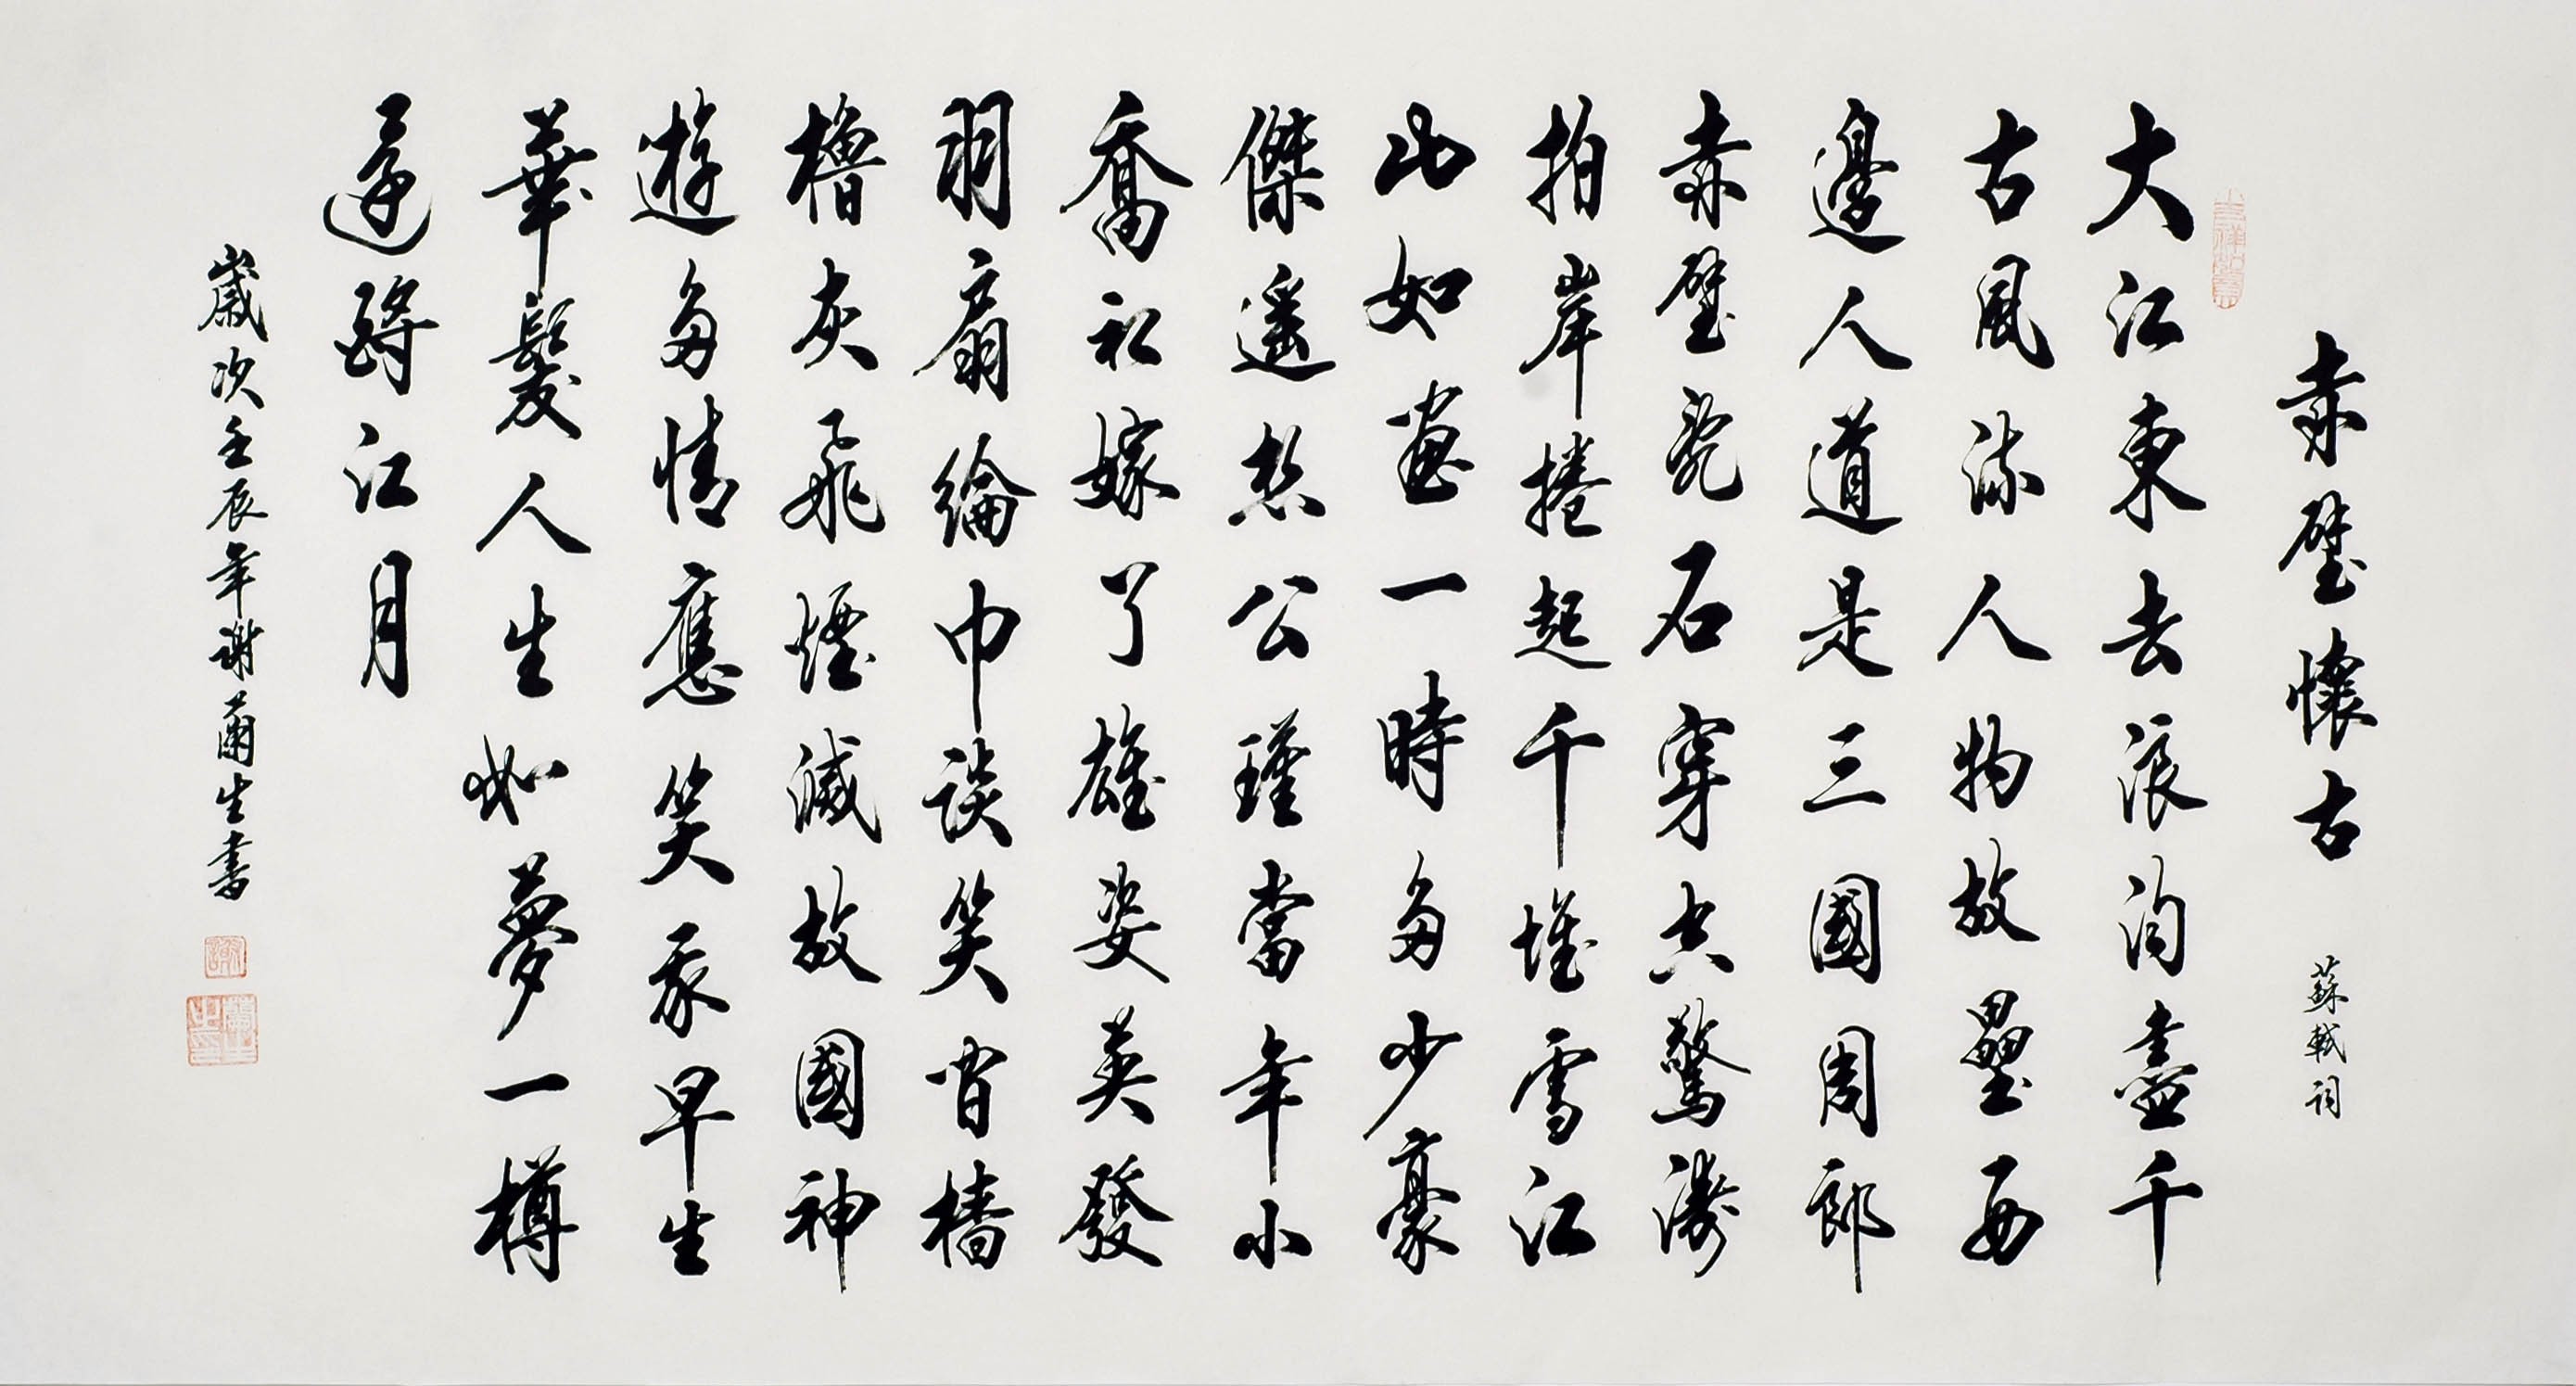 赤壁懷古 蘇軾詞
吉祥如意
大江東去浪淘盡千
古風流人物故壘西
邊人道是三國周郎
赤壁亂石穿空驚濤
拍岸捲起千堆雪江
山如畫一時多少豪
傑遙想公瑾當年小
喬初嫁了雄姿英發
羽扇綸巾談笑間檣
櫓灰飛煙滅故國神
遊多情應笑我早生
華髮人生如夢一樽
還酹江月
歲次壬辰年謝蘭生書
謝